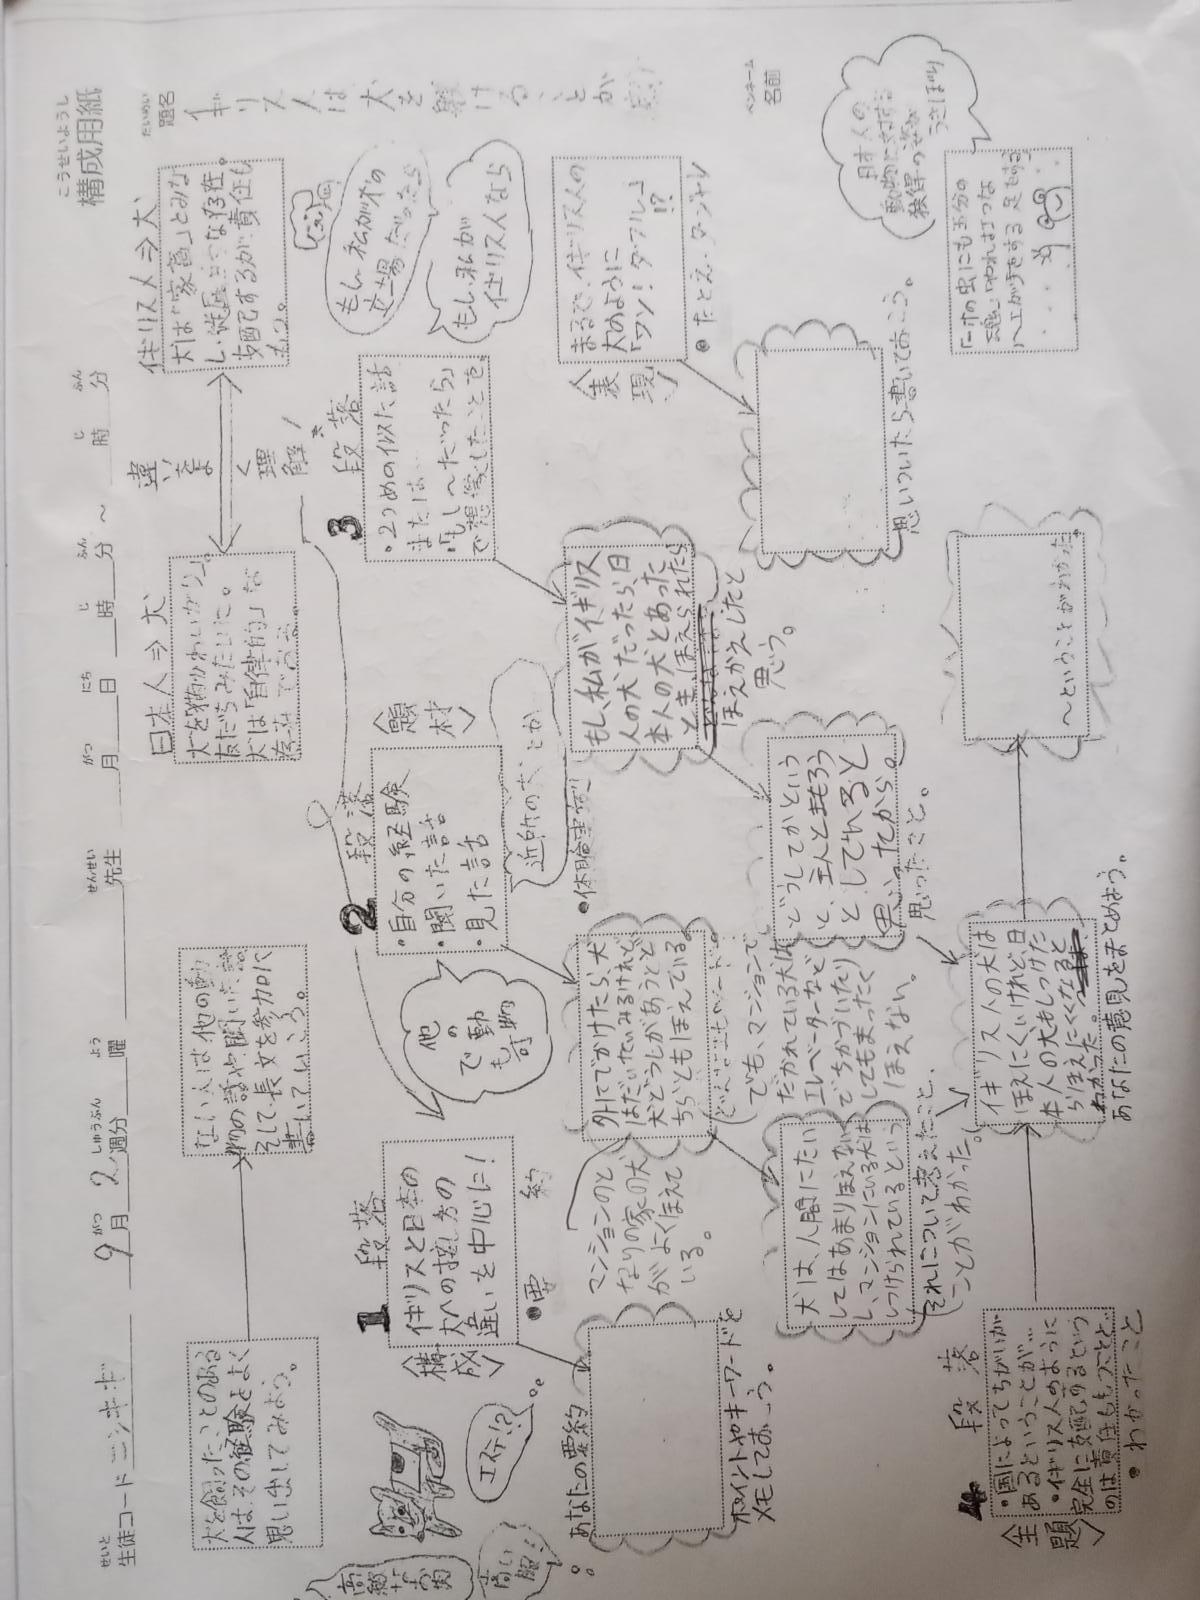 こうせいようし
構成用紙
せいと
生徒コード ニンキギ
9 がつ 月 2 しゅうぶん 週分 よう 曜 せんせい 先生 がつ 月 にち 日 じ 時 ふん 分 〜 じ 時 ふん 分
だいめい
題名
イギリス人は犬を躾けることが
ペンネーム
名前
犬を飼ったことのある
人はその経験をよく
思い出してみよう。
ない人は他の動
物の話や聞いた話
そして長文を参加に
書いてもらう。
日本人⇒犬
犬を「猫かわいがり」。
友だちみたいに。
犬は「自律的」な
違いをよく理解!
イギリス人⇒犬
犬は「家畜」とみな
し、従属的な存在。
支配するが責任も
もつ。
1 段落
〈構成〉
イギリスと日本の
犬への接し方の
違いを中心に!
●要約
高級なお肉
高い服!
エステ!?
あなたの要約
ポイントやキーワードを
メモしておこう。
2 段落
〈題材〉
・自分の経験
・聞いた話
・見た話
他の動物でも可
近所の犬とか
●体験実例
外にでかけたら、犬
はだいたいみるけれど、
犬どうしがあうとど
ちらともほえている。
マンションのと
なりの家の犬
がよくほえて
いる。
でも、マンションで
だかれている犬は
エレベーターなど
でちかづいたり
してもまったく
ほえない。
犬は、人間にたい
してはあまりほえない
し、マンションにいる犬は
しつけられているという
ことがわかった。
それについて考えたこと、
3 段落
・2つめの似た話
または…
・「もし〜だったら」
で想像したことを。
もし、私が犬の
立場だったら
もし、私が
イギリス人なら
もし、私がイギリス
人の犬だったら、日
本人の犬とあった
ときほえられたら
ほえかえしたと
思う。
どうしてかという
と、主人と守ろう
としていると
思ったから。
思ったこと。
〈表現〉
まるで、イギリス人の
犬のように
「ワン!ダフル」
!?
●たとえ・ダジャレ
思いついたら書いておこう。
4 段落
〈主題〉
・国によってちがいが
あるということが…
・イギリス人のように
完全に支配するという
のは責任ももつことと…
●わかったこと
イギリス人の犬は
ほえにくいけれど、日
本人の犬もしつけた
らほえにくくなると
わかった。
あなたの意見をまとめよう。
〜ということがわかった
日本人の
動物に対する
独得の姿が
うきぼり
「一寸の虫にも五分の
魂」「やれ打つな
ハエが手をする足をする」